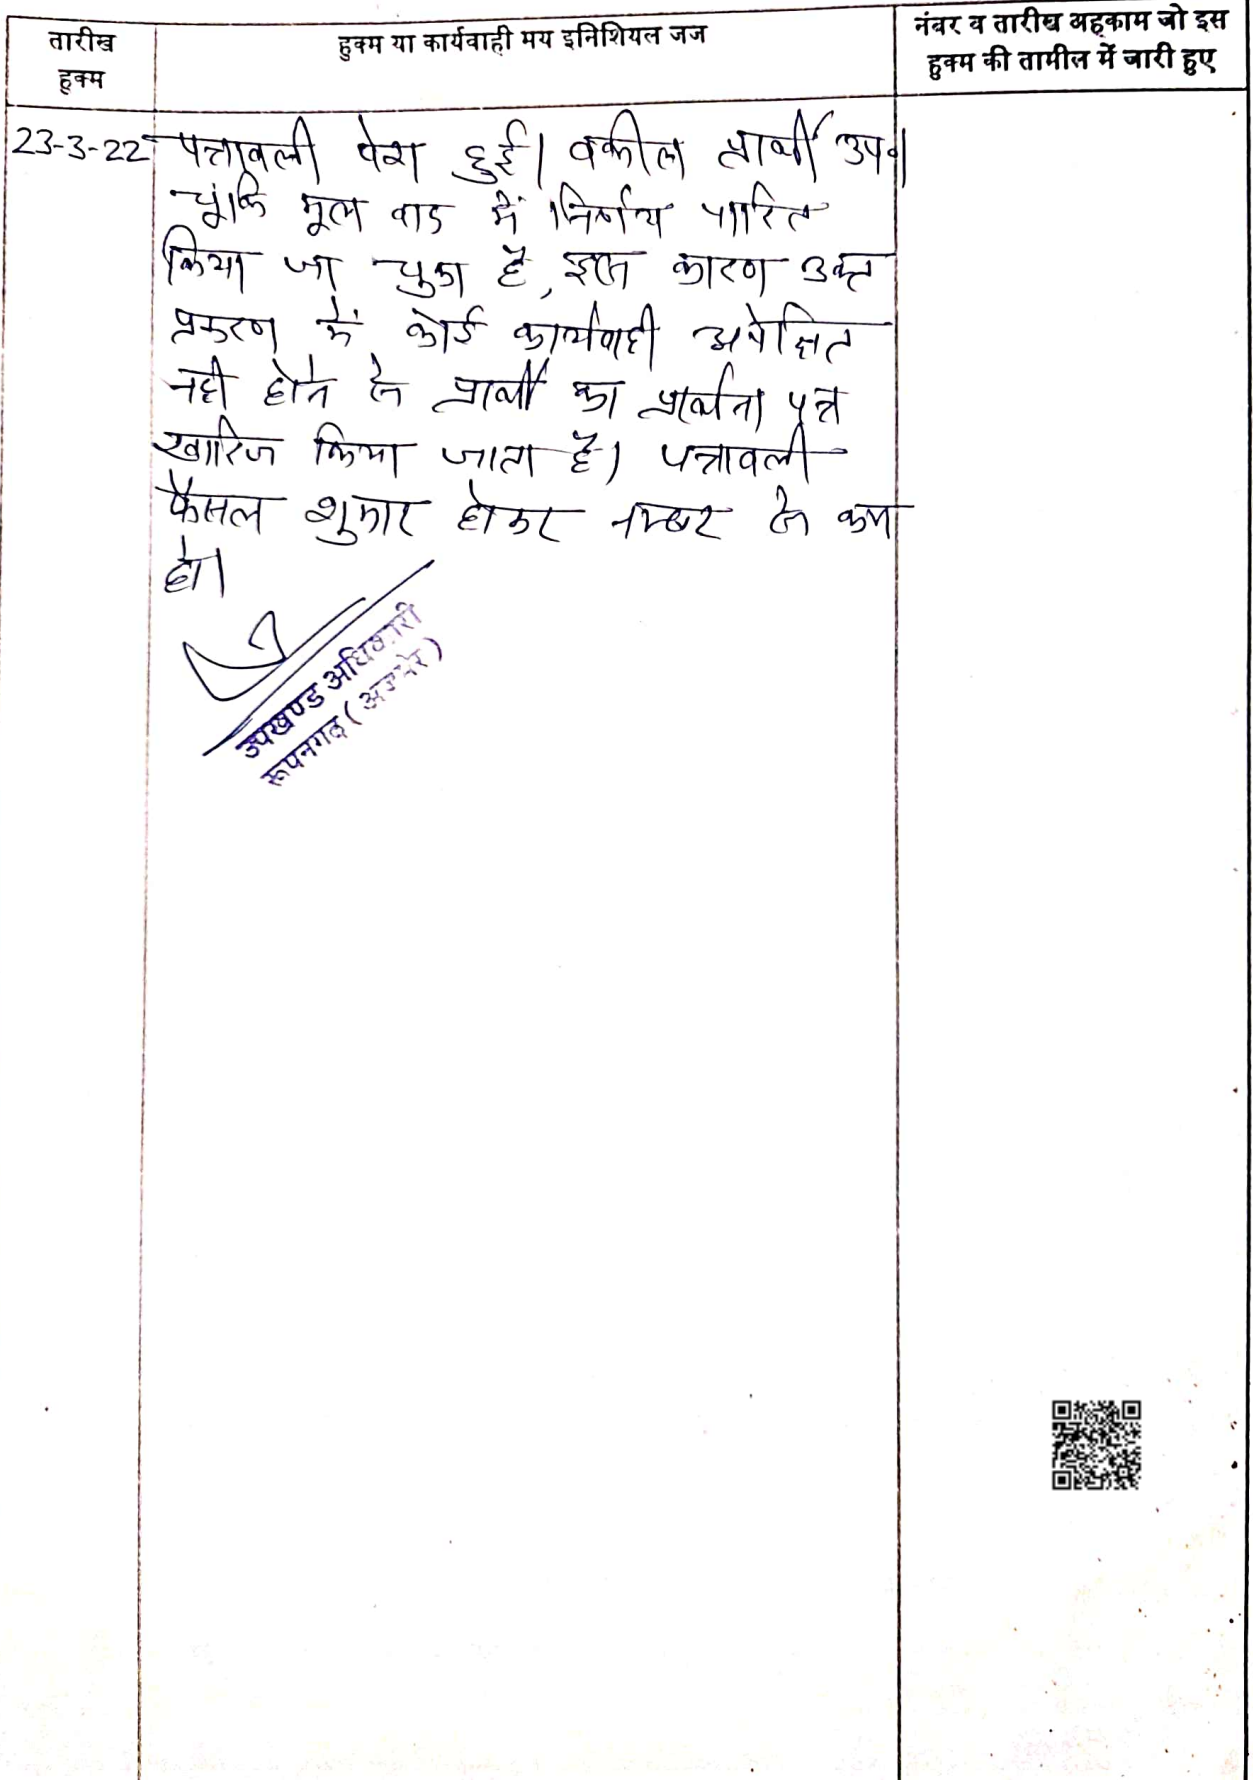 तारीख
हुक्म
हुक्म या कार्यवाही मय इनिशियल जज
नंबर व तारीख अहकाम जो इस
हुक्म की तामील में जारी हुए
23-3-22 पत्रावली पेश हुई। वकील प्रार्थी उप०।
चूंकि मूल वाद में निर्णय पारित
किया जा चुका है, इस कारण उक्त
प्रकरण में कोई कार्यवाही अपेक्षित
नही होने से प्रार्थी का प्रार्थना पत्र
खारिज किया जाता है। पत्रावली
फैसल शुमार होकर नम्बर से कम
हो।
उपखण्ड अधिकारी
रूपनगढ़ (अजमेर)